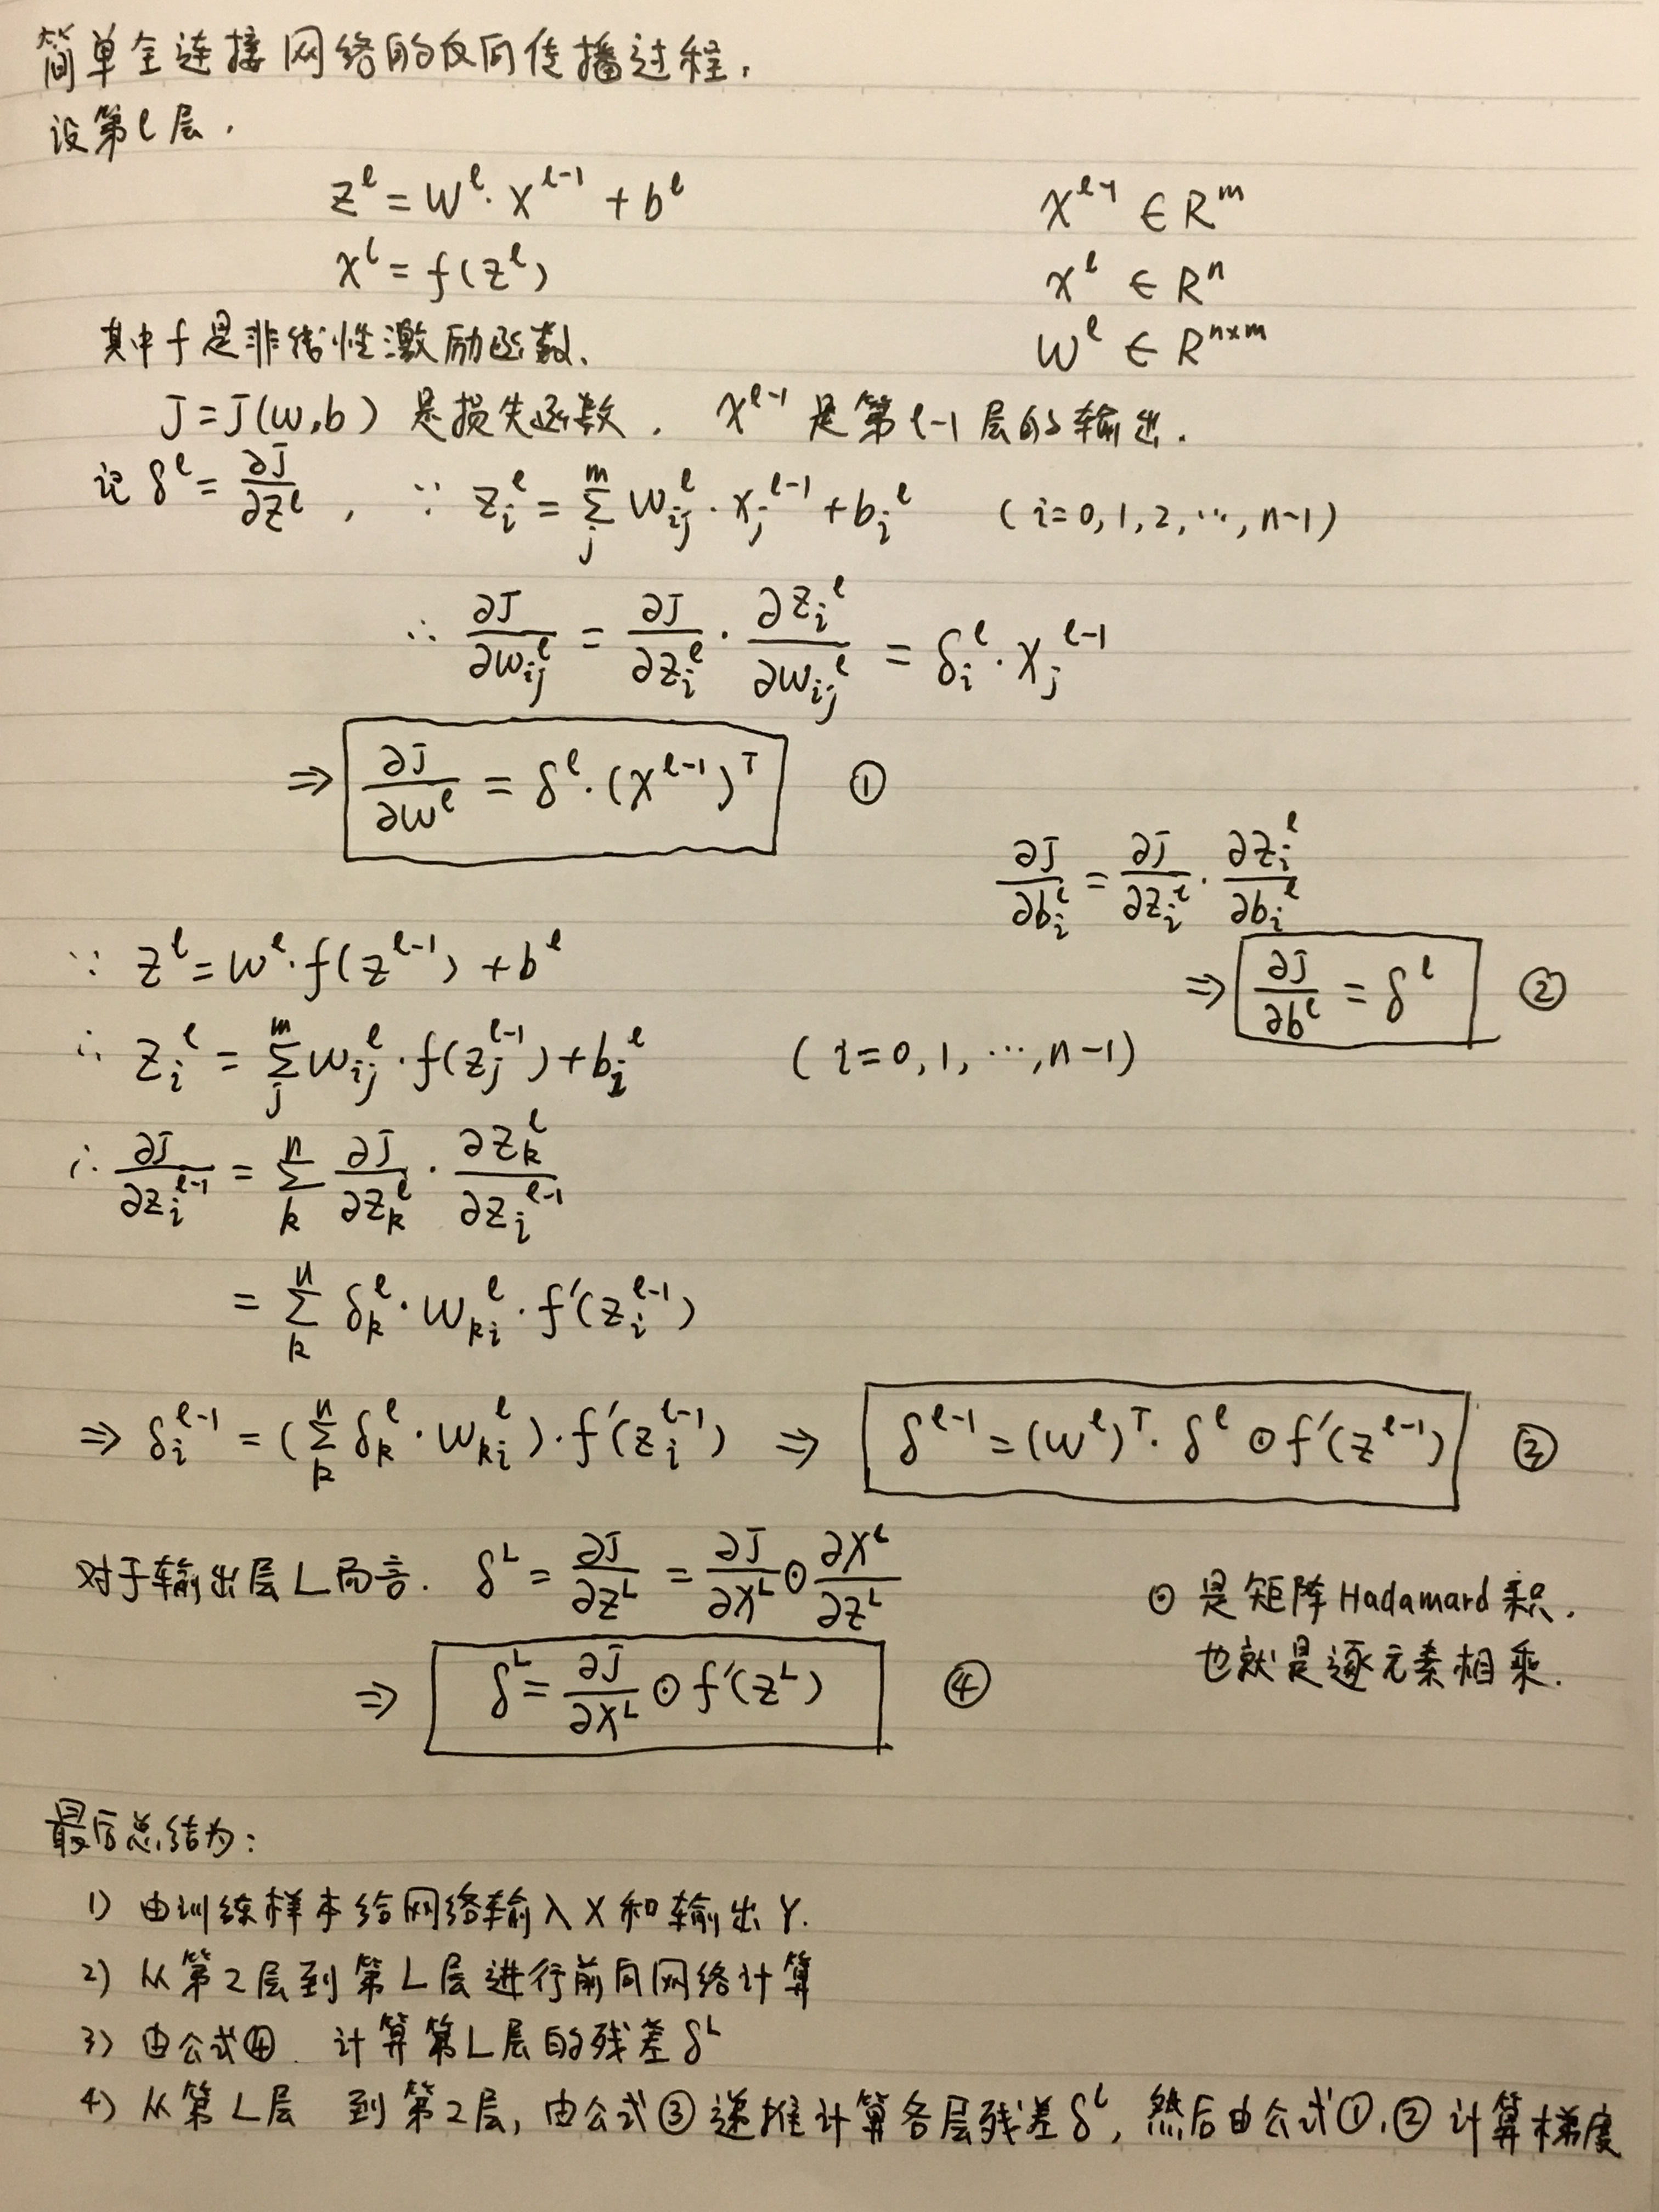 简单全连接网络的反向传播过程.
设第l层.
z^l = W^l · x^{l-1} + b^l    x^{l-1} ∈ R^m
x^l = f(z^l)    x^l ∈ R^n
其中f是非线性激励函数.    W^l ∈ R^{n×m}
J = J(w,b) 是损失函数. x^{l-1} 是第l-1层的输出.
记 δ^l = ∂J/∂z^l , ∵ z_i^l = Σ_j^m w_{ij}^l · x_j^{l-1} + b_i^l (i=0,1,2,…,n-1)
∴ ∂J/∂w_{ij}^l = ∂J/∂z_i^l · ∂z_i^l/∂w_{ij}^l = δ_i^l · x_j^{l-1}
⇒ ∂J/∂w^l = δ^l · (x^{l-1})^T ①
∂J/∂b_i^l = ∂J/∂z_i^l · ∂z_i^l/∂b_i^l
⇒ ∂J/∂b^l = δ^l ②
∵ z^l = w^l · f(z^{l-1}) + b^l
∴ z_i^l = Σ_j^m w_{ij}^l · f(z_j^{l-1}) + b_i^l (i=0,1,…,n-1)
∴ ∂J/∂z_i^{l-1} = Σ_k^n ∂J/∂z_k^l · ∂z_k^l/∂z_i^{l-1}
= Σ_k^n δ_k^l · w_{ki}^l · f′(z_i^{l-1})
⇒ δ_i^{l-1} = (Σ_k^n δ_k^l · w_{ki}^l) · f′(z_i^{l-1}) ⇒ δ^{l-1} = (w^l)^T · δ^l ⊙ f′(z^{l-1}) ③
对于输出层L而言. δ^L = ∂J/∂z^L = ∂J/∂x^L ⊙ ∂x^L/∂z^L
⊙ 是矩阵Hadamard积.
也就是逐元素相乘.
⇒ δ^L = ∂J/∂x^L ⊙ f′(z^L) ④
最后总结为:
1) 由训练样本给网络输入X和输出Y.
2) 从第2层到第L层进行前向网络计算
3) 由公式④. 计算第L层的残差δ^L
4) 从第L层 到第2层, 由公式③递推计算各层残差δ^l, 然后由公式①,②计算梯度